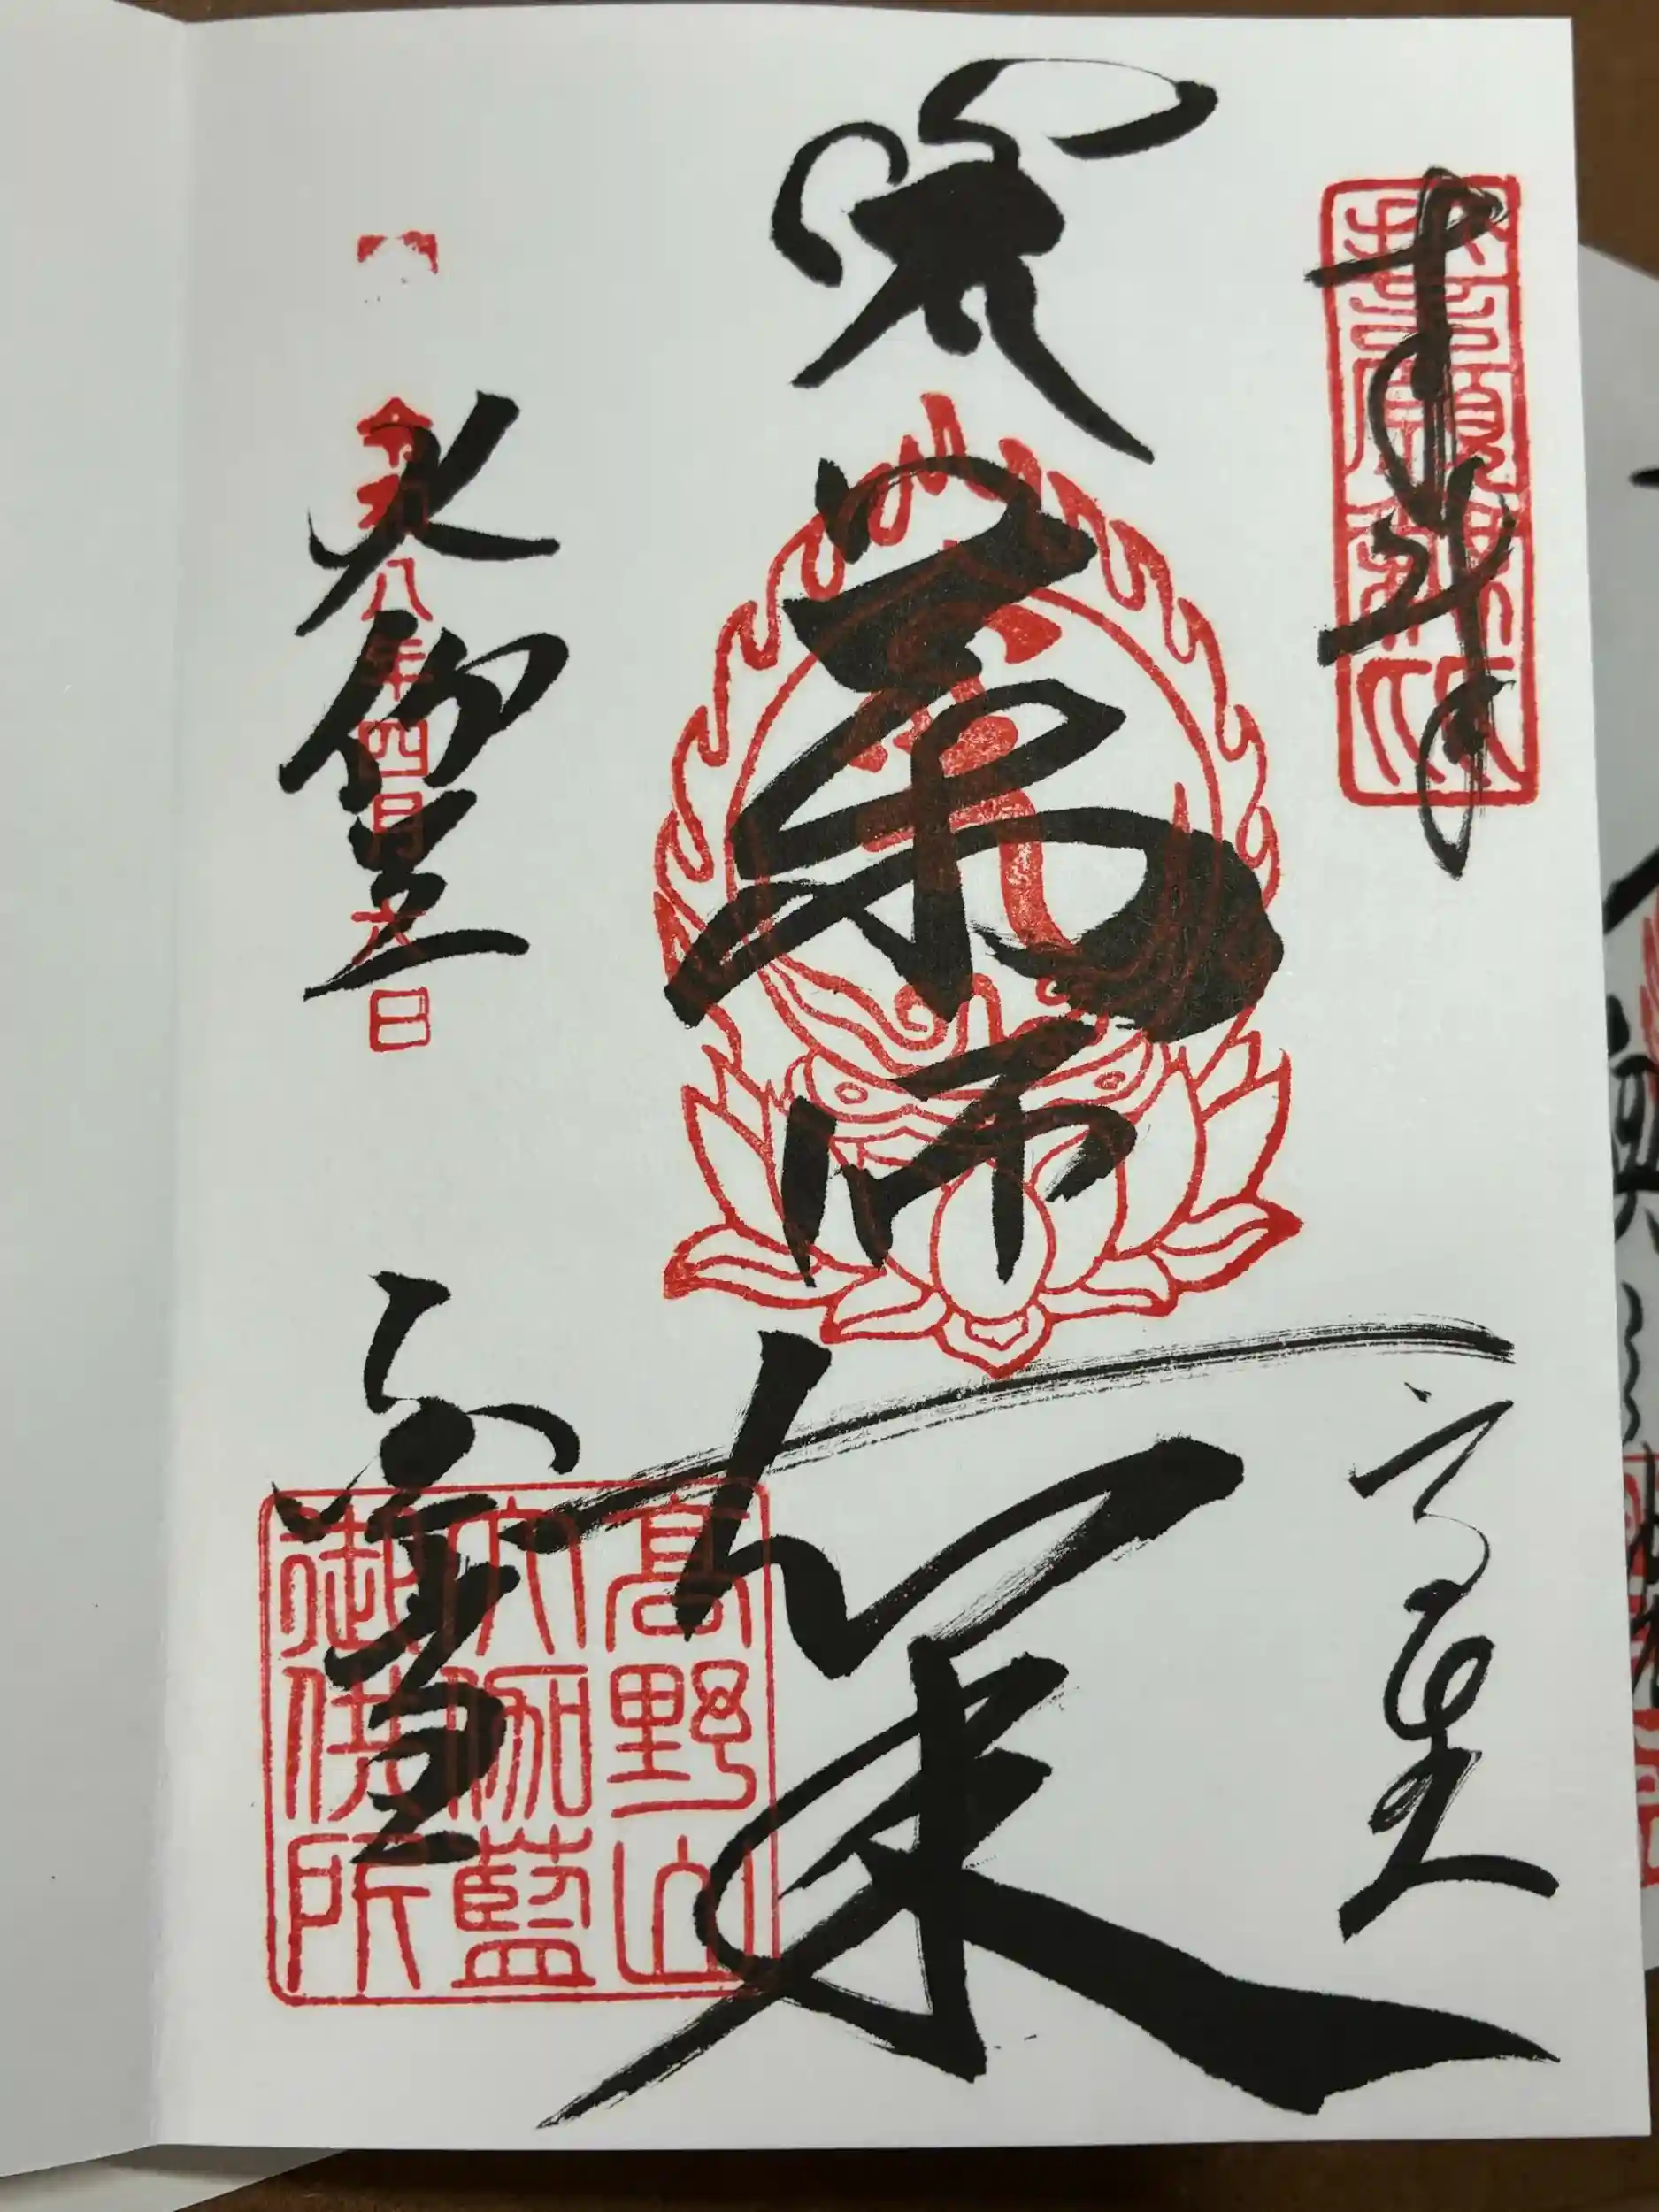 奉拝
高野山
薬師如来
大伽藍
金堂
令和八年四月六日
高野山
大伽藍
御供所